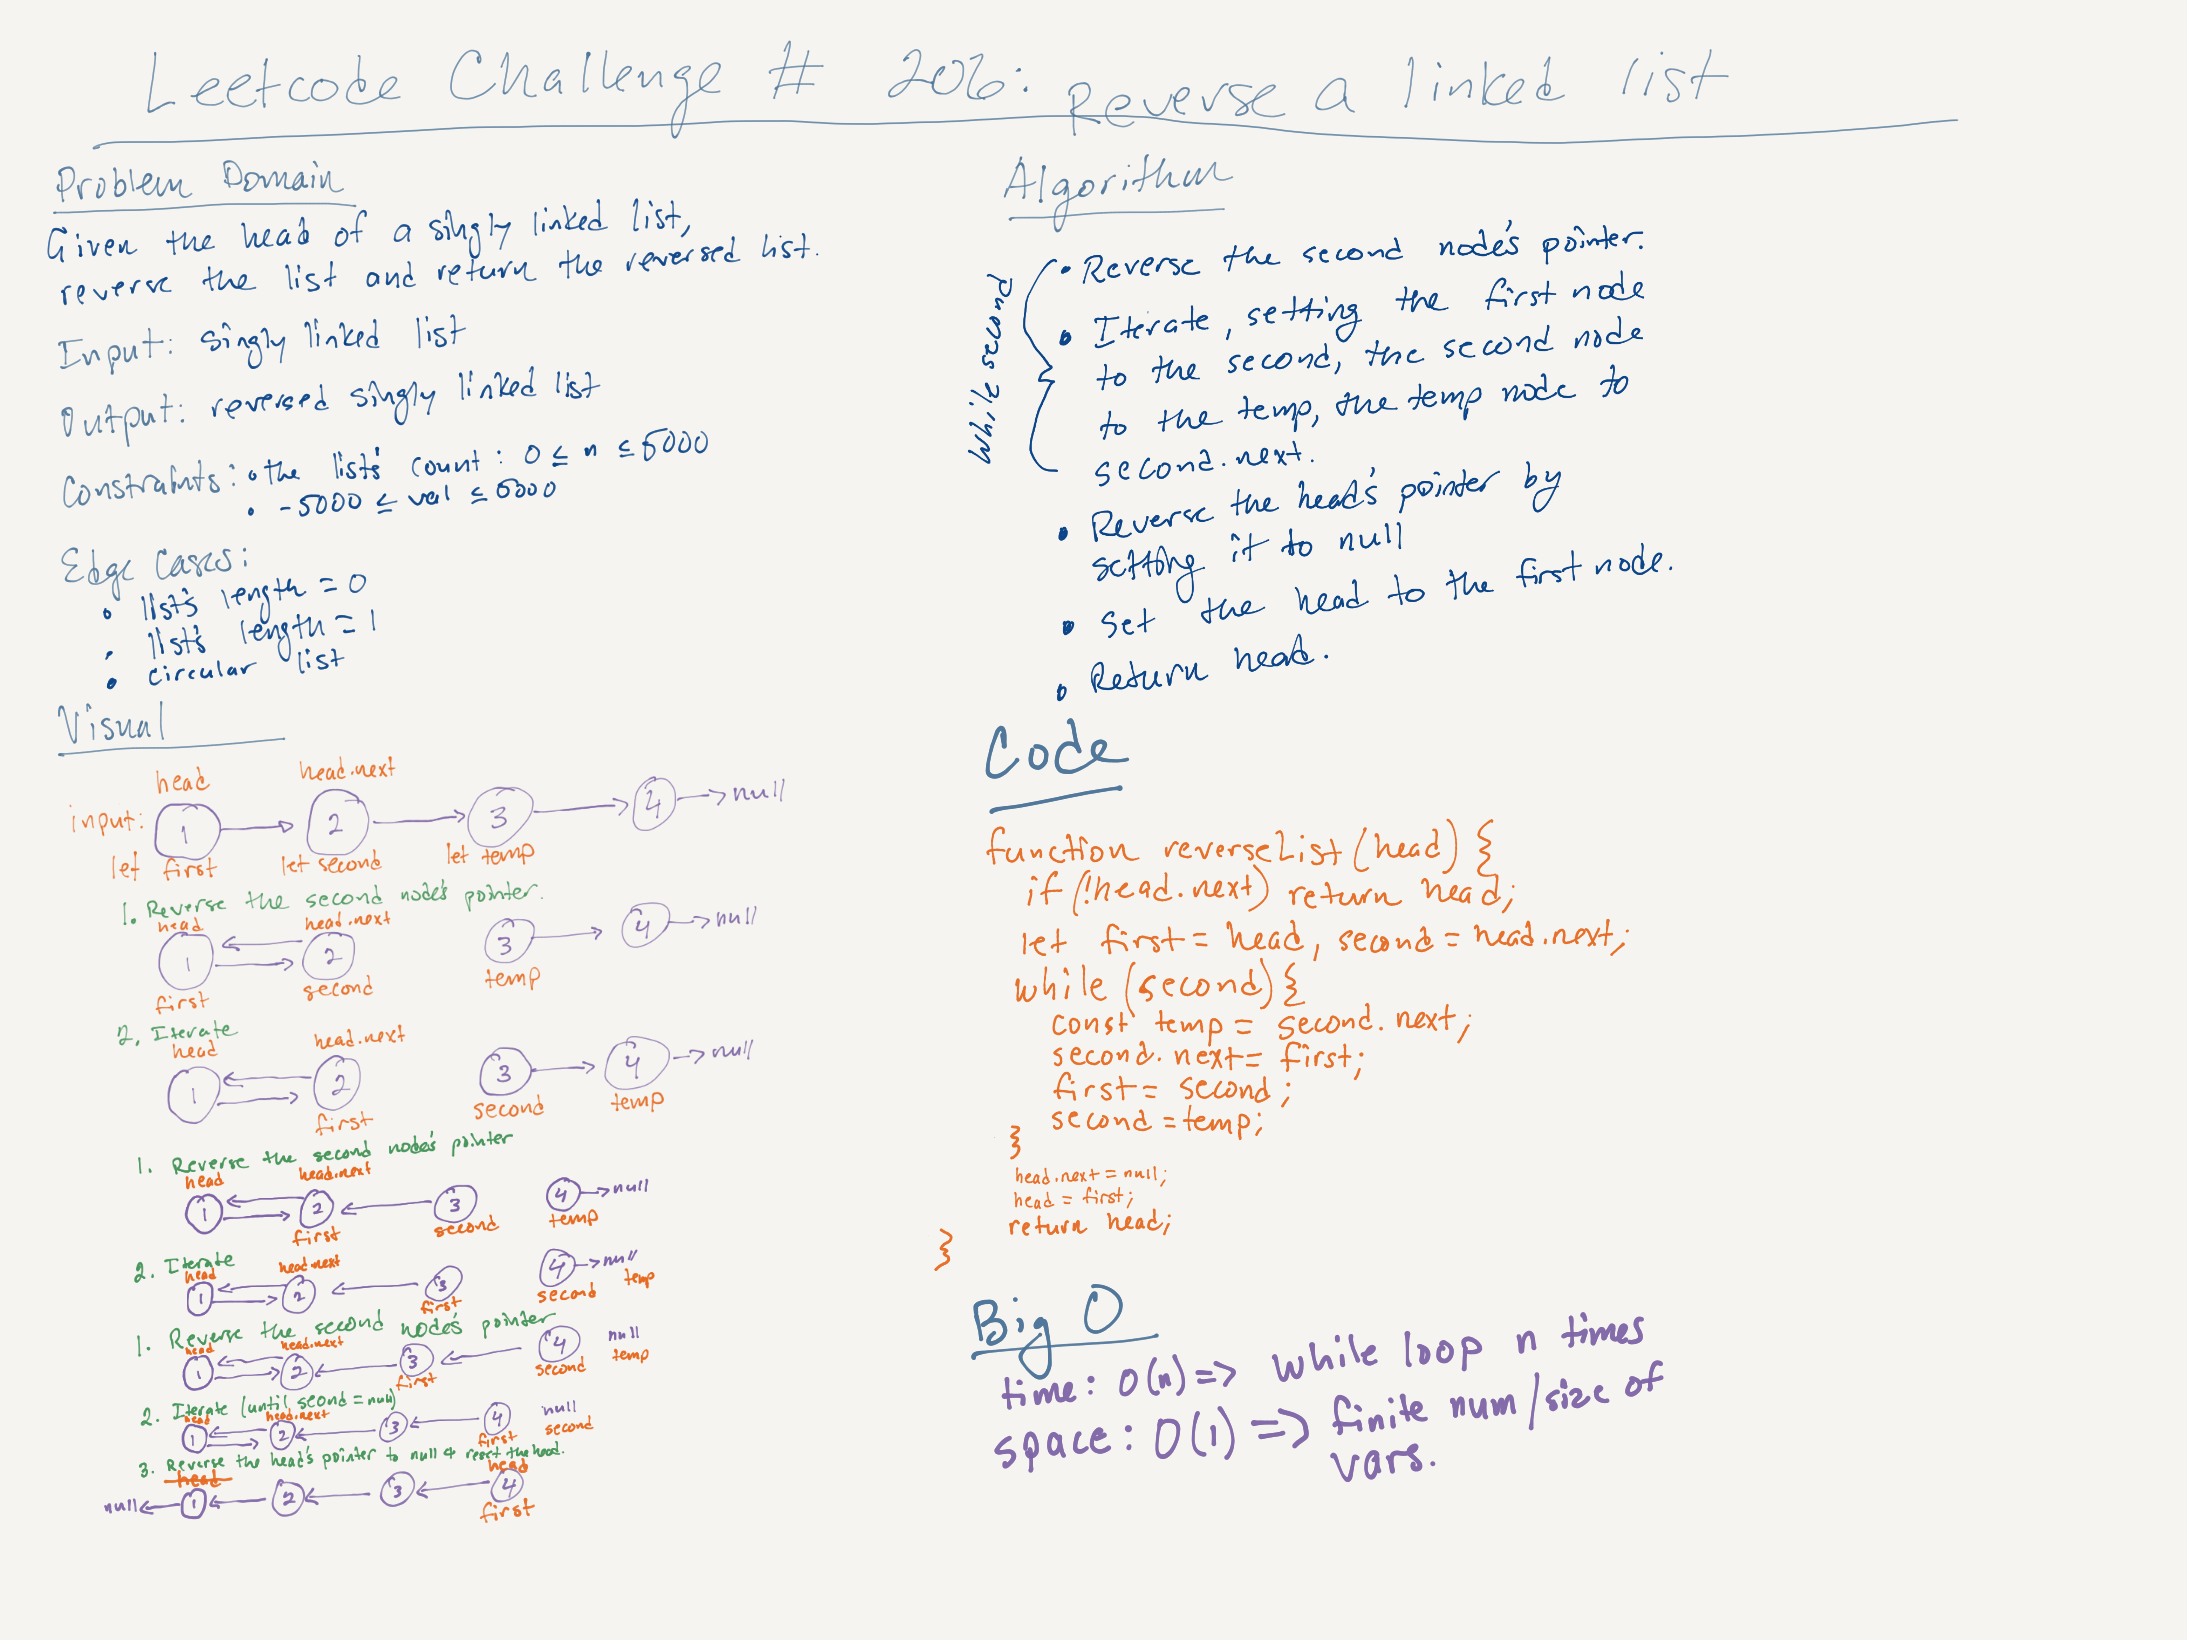 Leetcode Challenge # 206: Reverse a linked list
Problem Domain
Given the head of a singly linked list,
reverse the list and return the reversed list.
Input: singly linked list
Output: reversed singly linked list
Constraints: • the list's count: 0 ≤ n ≤ 5000
• -5000 ≤ val ≤ 5000
Edge Cases:
• list's length = 0
• list's length = 1
• circular list
Visual
head head.next
input: 1 2 3 4 null
let first let second let temp
1. Reverse the second node's pointer.
head head.next
1 2 3 4 null
first second temp
2. Iterate
head head.next
1 2 3 4 null
first second temp
1. Reverse the second node's pointer
head head.next
1 2 3 4 null
first second temp
2. Iterate
head head.next
1 2 3 4 null
first second temp
1. Reverse the second node's pointer
head head.next
1 2 3 4 null
first second temp
2. Iterate (until second = null)
head head.next
1 2 3 4 null
first second
3. Reverse the head's pointer to null & reset the head.
head head
null 1 2 3 4
first
Algorithm
while second
• Reverse the second node's pointer.
• Iterate, setting the first node
to the second, the second node
to the temp, the temp node to
second.next.
• Reverse the head's pointer by
setting it to null
• Set the head to the first node.
• Return head.
Code
function reverseList(head) {
if (!head.next) return head;
let first = head, second = head.next;
while (second) {
const temp = second.next;
second.next = first;
first = second;
second = temp;
}
head.next = null;
head = first;
return head;
}
Big O
time: O(n) => while loop n times
space: O(1) => finite num/size of
vars.